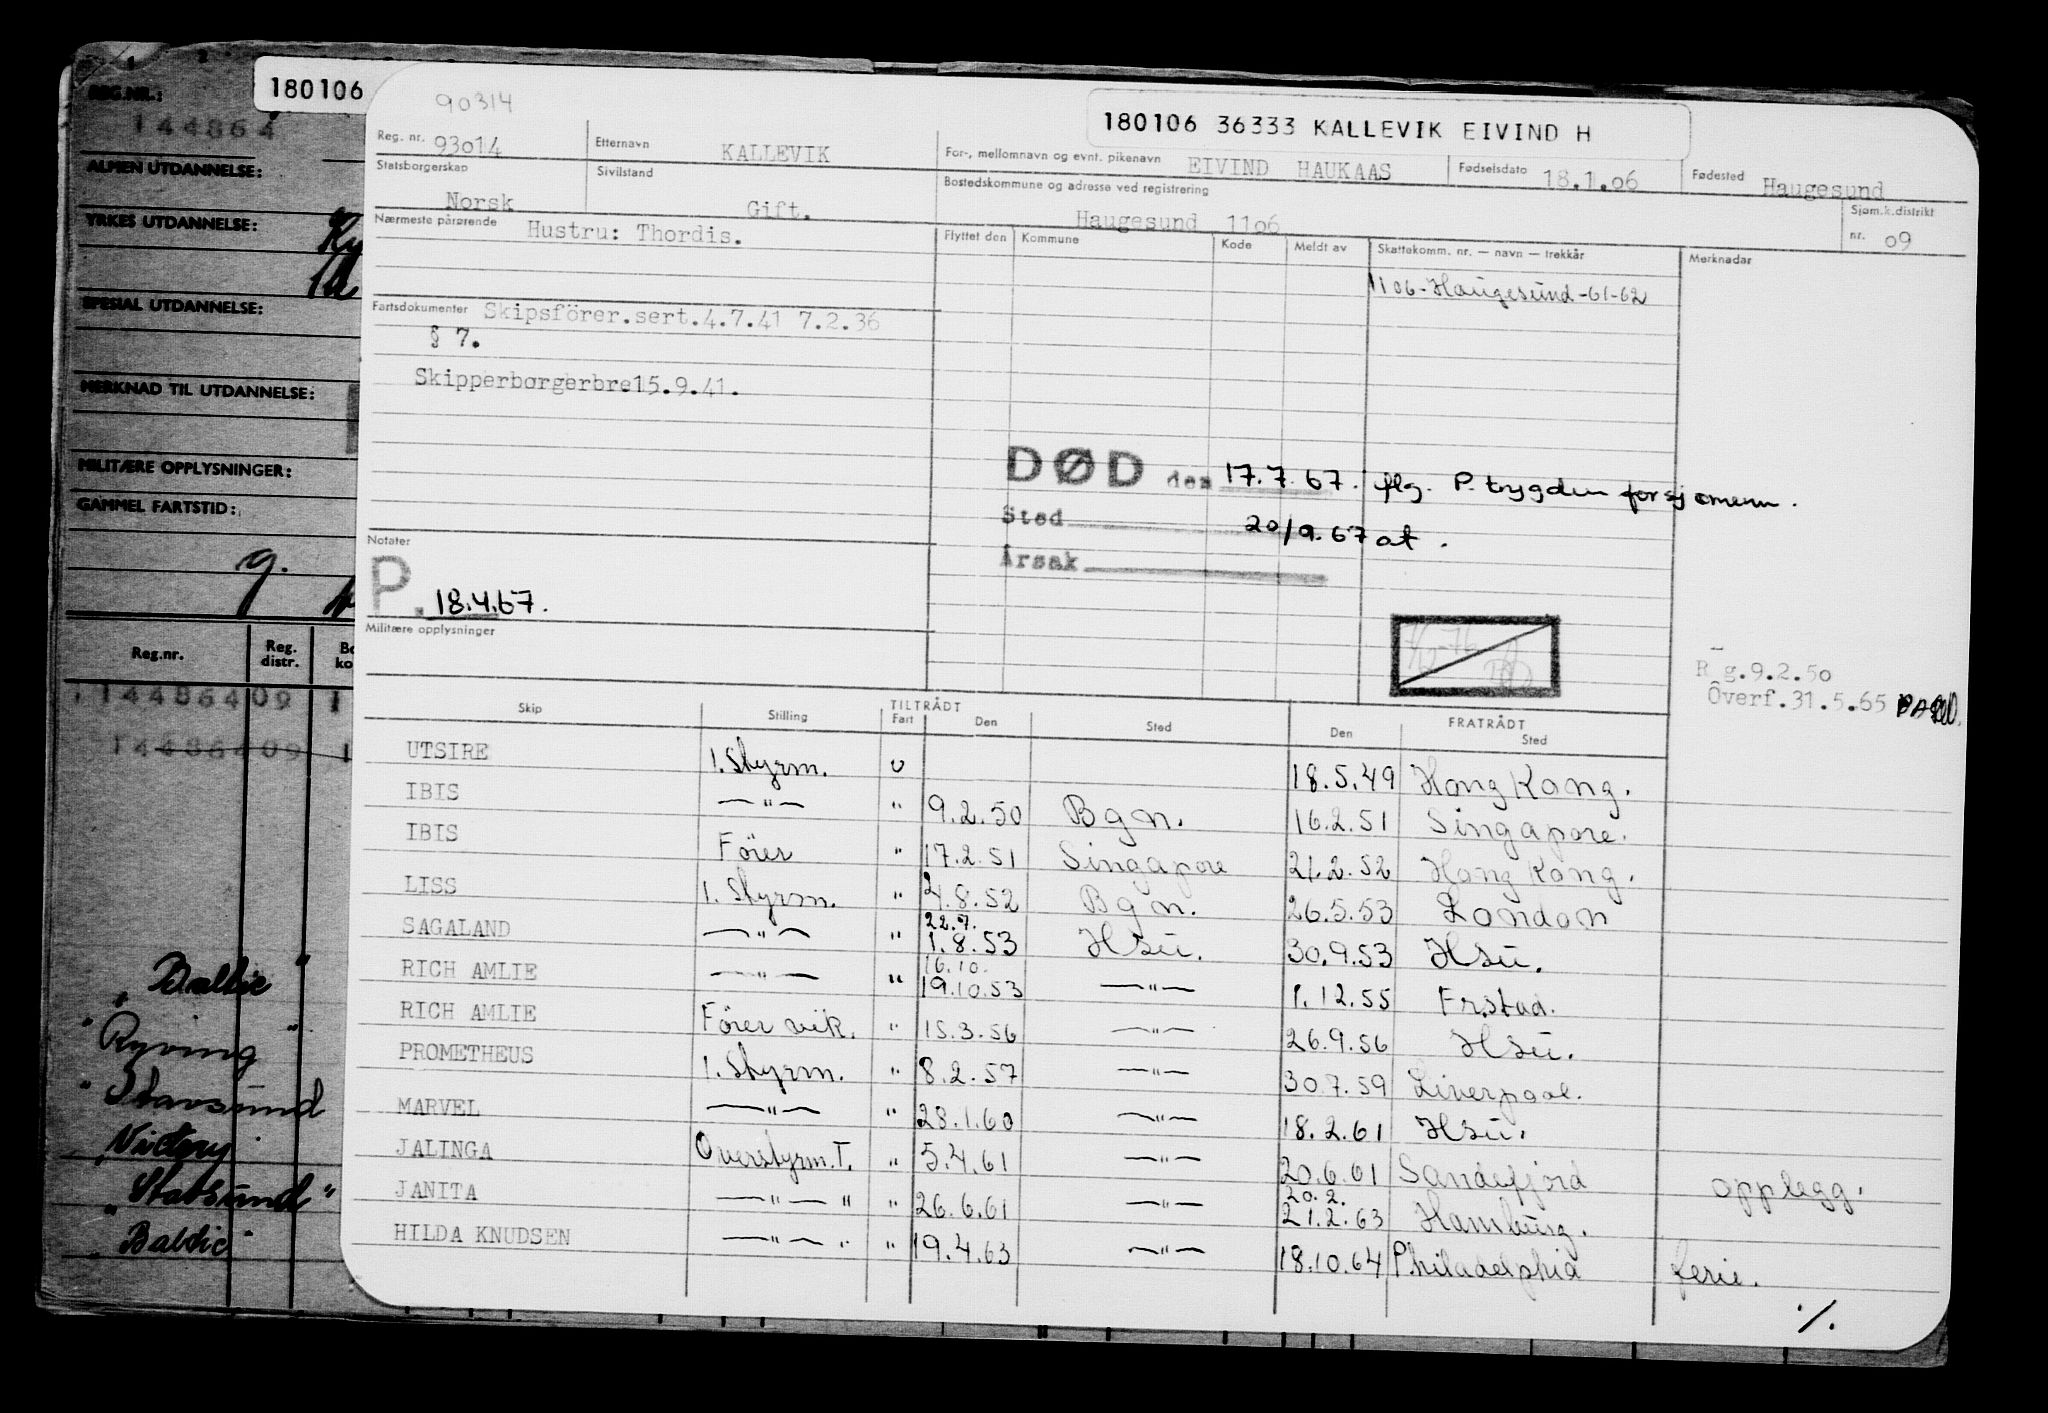 180106
90314
180106 36333 KALLEVIK EIVIND H
REG.NR.:
144864
ALMEN UTDANNELSE:
YRKES UTDANNELSE:
SPESIAL UTDANNELSE:
MERKNAD TIL UTDANNELSE:
MILITÆRE OPPLYSNINGER:
GAMMEL FARTSTID:
g.
Reg.nr. Reg. distr.
14486409 1
14486409 1
" Baltic "
" Ryving "
" Stavsund
" Victory
" Statsund "
" Baltic "
Reg. nr. 93014 Etternavn KALLEVIK For-, mellomnavn og evnt. pikenavn EIVIND HAUKAAS Fødselsdato 18.1.06 Fødested Haugesund
Statsborgerskap Norsk Sivilstand Gift. Bostedskommune og adresse ved registrering Haugesund 1106 Sjøm.k.distrikt nr. 09
Nærmeste pårørende Hustru: Thordis. Flyttet den Kommune Kode Meldt av Skattekomm. nr. — navn — trekkår Merknader
1106-Haugesund-61-62
Fartsdokumenter Skipsförer.sert.4.7.41 7.2.36
§ 7.
Skipperborgerbre15.9.41.
DØD den 17.7.67. flg. P. trygden for sjømenn.
Sted 20/9.67 at.
Årsak
Notater
P. 18.4.67.
Militære opplysninger
R g.9.2.50
Överf.31.5.65
Skip Stilling TILTRÅDT Fart Den Sted FRATRÅDT Den Sted
UTSIRE 1. Styrm. U 18.5.49 Hong Kong.
IBIS —"— " 9.2.50 Bgn. 16.2.51 Singapore.
IBIS Förer " 17.2.51 Singapore 21.2.52 Hong Kong.
LISS 1. Styrm. " 4.8.52 Bgn. 26.5.53 London
22.7.
SAGALAND —"— " 1.8.53 Hsu. 30.9.53 Hsu.
16.10.
RICH AMLIE —"— " 19.10.53 —"— 1.12.55 Frstad.
RICH AMLIE Förer vik. " 15.3.56 —"— 26.9.56 Hsu.
PROMETHEUS 1. Styrm. " 8.2.57 —"— 30.7.59 Liverpool.
MARVEL —"— " 28.1.60 —"— 18.2.61 Hsu.
JALINGA Overstyrm. T. " 5.4.61 —"— 20.6.61 Sandefjord opplegg.
20.2.
JANITA —"— " " 26.6.61 —"— 21.2.63 Hamburg.
HILDA KNUDSEN —"— " " 19.4.63 —"— 18.10.64 Philadelphia ferie.
./.